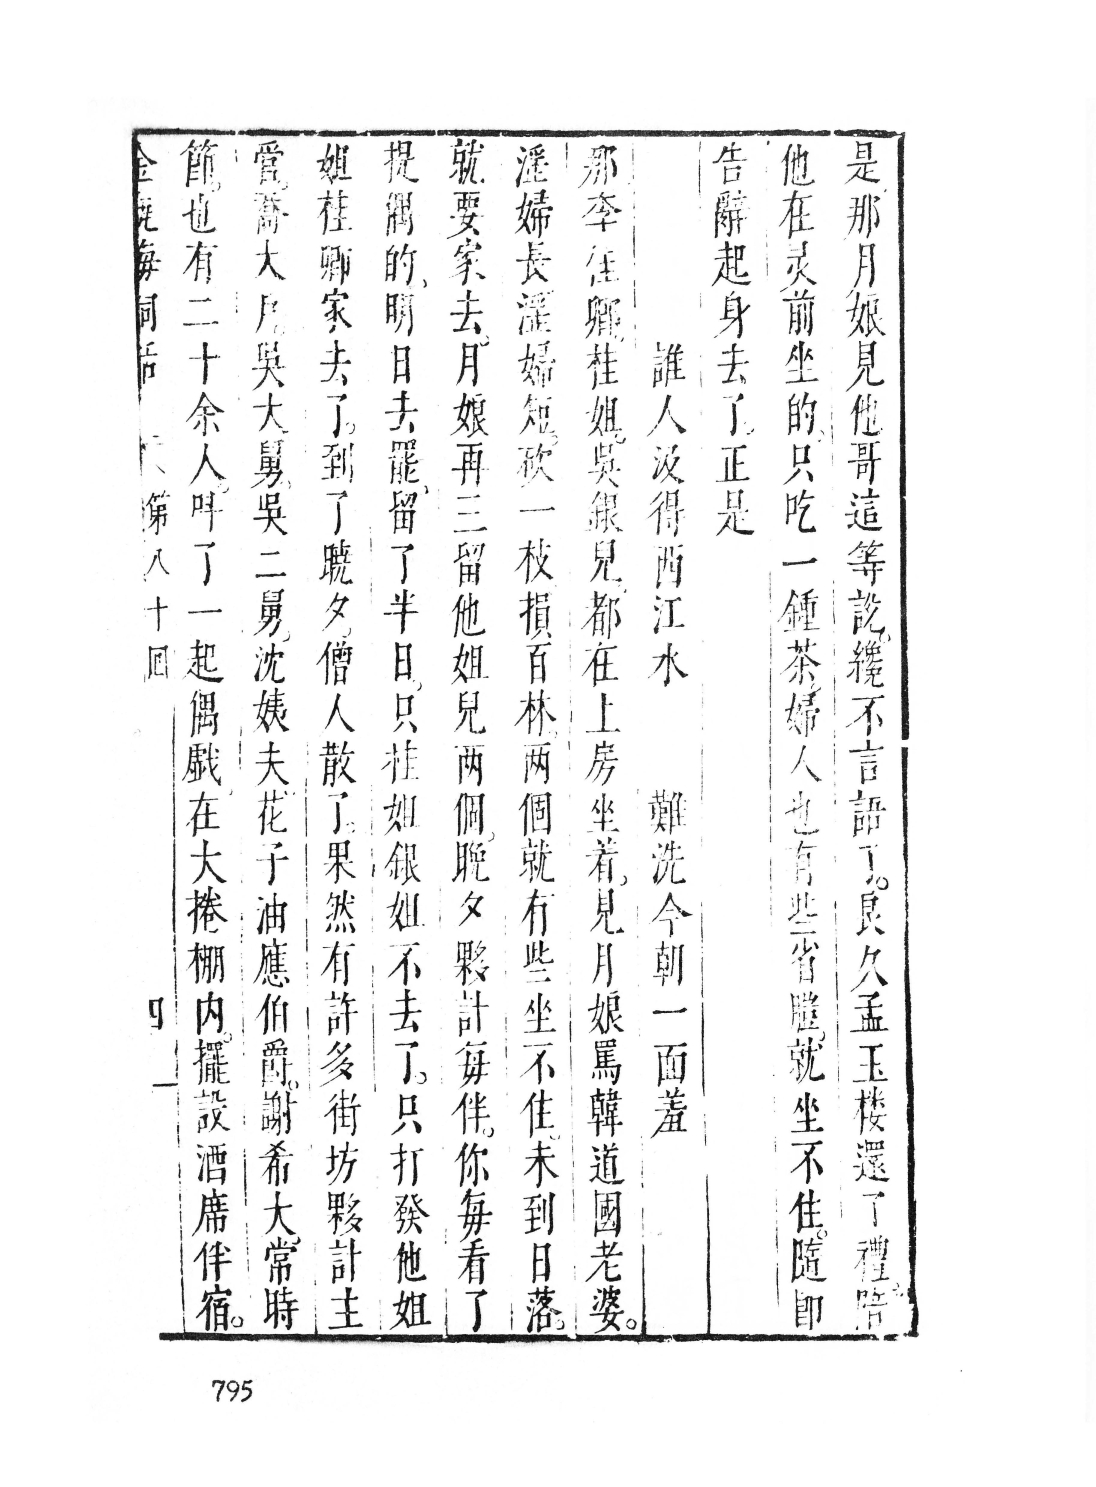 是那月娘見他哥這等說。纔不言語了。良久孟玉楼還了禮。陪
他在灵前坐的。只吃一鍾茶。婦人也有些省瞧。就坐不住。隨即
告辭起身去了。正是
誰人汲得西江水　難洗今朝一面羞
那李桂卿。桂姐。吳銀兒。都在上房坐着。見月娘罵韓道國老婆。
淫婦長淫婦短。砍一枝損百林。两個就有些坐不住。未到日落。
就要家去。月娘再三留他姐兒两個。晚夕夥計每伴。你每看了
提偶的。明日去罷。留了半日。只桂姐銀姐不去了。只打發他姐
姐桂卿家去了。到了晚夕。僧人散了。果然有許多街坊夥計主
管。喬大户。吳大舅。吳二舅。沈姨夫。花子油。應伯爵。謝希大。常時
節。也有二十余人。呌了一起偶戲。在大捲棚内。擺設酒席伴宿。
金瓶梅詞話　第八十回　四
795